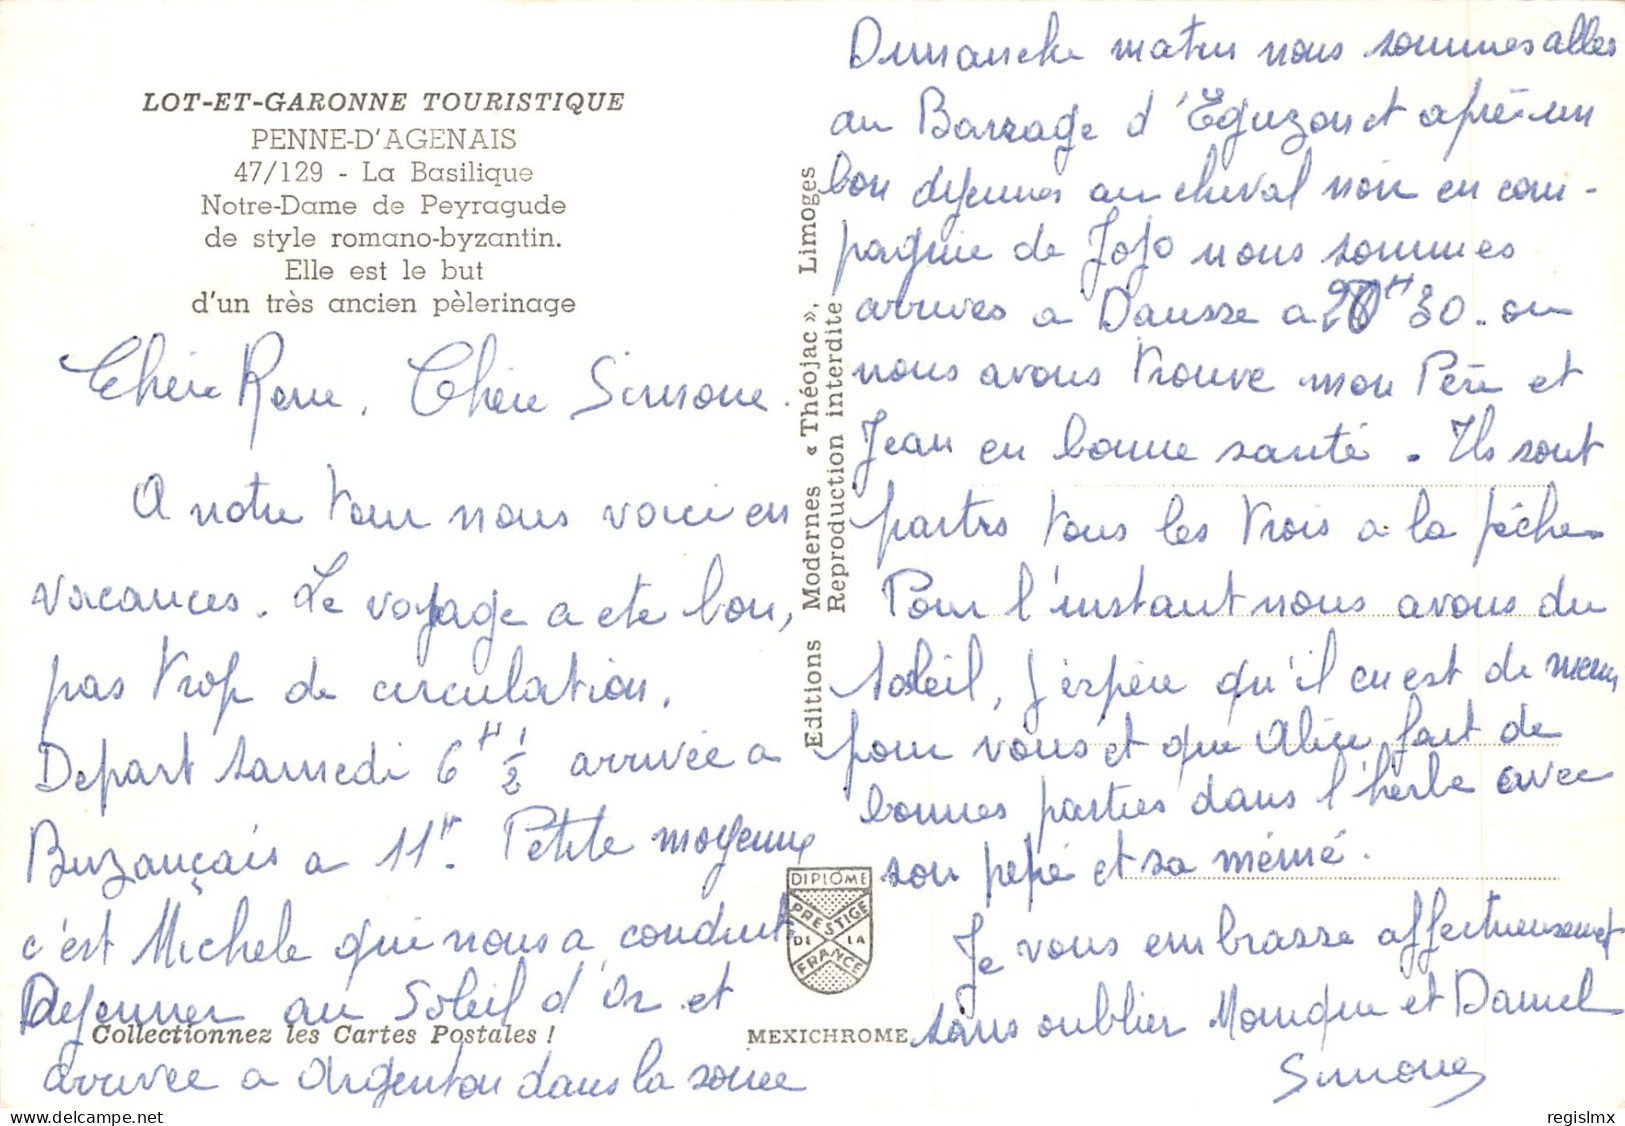 LOT-ET-GARONNE TOURISTIQUE
PENNE-D'AGENAIS
47/129 - La Basilique
Notre-Dame de Peyragude
de style romano-byzantin.
Elle est le but
d'un très ancien pèlerinage
Chère Rene, Chère Simone.
A notre tour nous voici en
vacances. Le voyage a ete bon,
pas trop de circulation.
Depart samedi 6 H 1/2 arrivée a
Buzançais a 11H. Petite moyenne
c'est Michele qui nous a conduit
Dejeuner au Soleil d'Or et
arrivée a Argenton dans la soiree
Collectionnez les Cartes Postales !
Editions Modernes « Théojac », Limoges
Reproduction interdite
DIPLOME
PRESTIGE
DE LA
FRANCE
MEXICHROME
Dimanche matin nous sommes alles
au Barrage d'Eguzon et après un
bon dejeuner au cheval noir en com-
pagnie de Jojo nous sommes
arrives a Dausse a H 30. ou
nous avons trouve mon Père et
Jean en bonne santé. Ils sont
partis tous les trois a la pêche
Pour l'instant nous avons du
soleil, j'espère qu'il en est de meme
pour vous et que Alice fait de
bonnes parties dans l'herbe avec
son pépé et sa mémé.
Je vous embrasse affectueusement
sans oublier Monique et Daniel
Simone
regislmx
www.delcampe.net